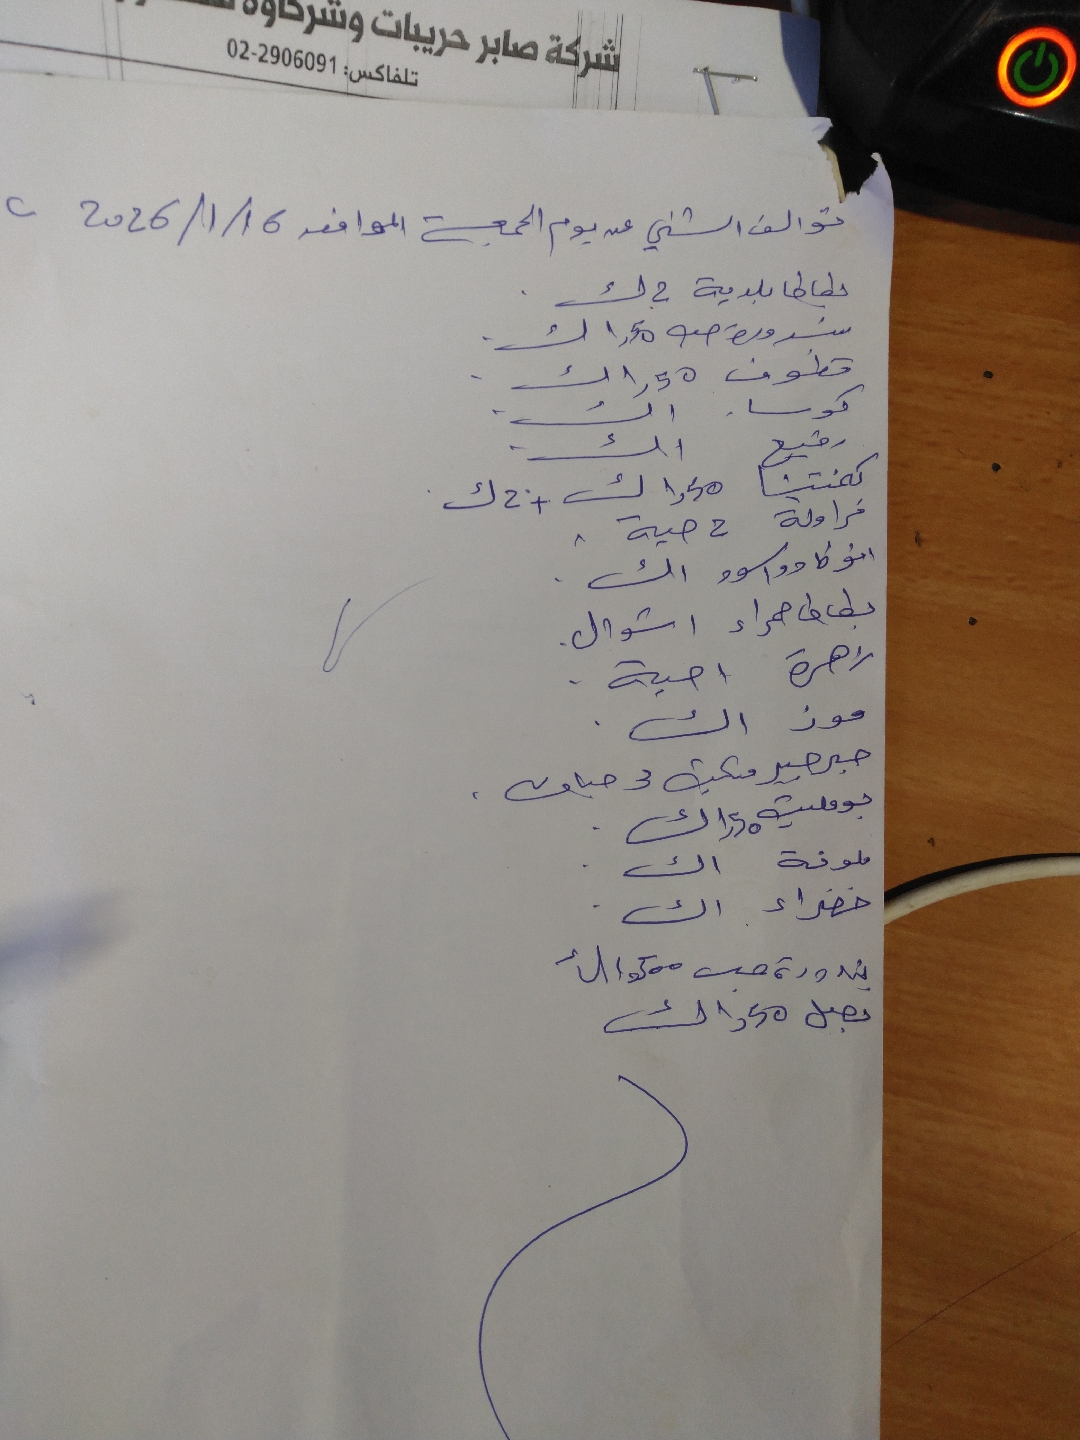 شركة صابر حريبات وشركاؤه
تلفاكس: 02-2906091
توالف الشني عن يوم الجمعة الموافق 2026/1/16
بطاطا بلدية 2 ك
بندورة حبه 1,50 ك
قطوف 1,50 ك
كوسا 1 ك
رفيع 1 ك
كمنتينا 1,50 ك + 2 ك
فراولة 2 حبة
افوكادو اسود 1 ك
بطاطا حمراء 1 شوال
زهرة 1 حبة
موز 1 ك
جرجير 3 حبات
بوملية 1,50 ك
ملونة 1 ك
خضراء 1 ك
بندورة حب 1,500 ك
بصل 1,50 ك